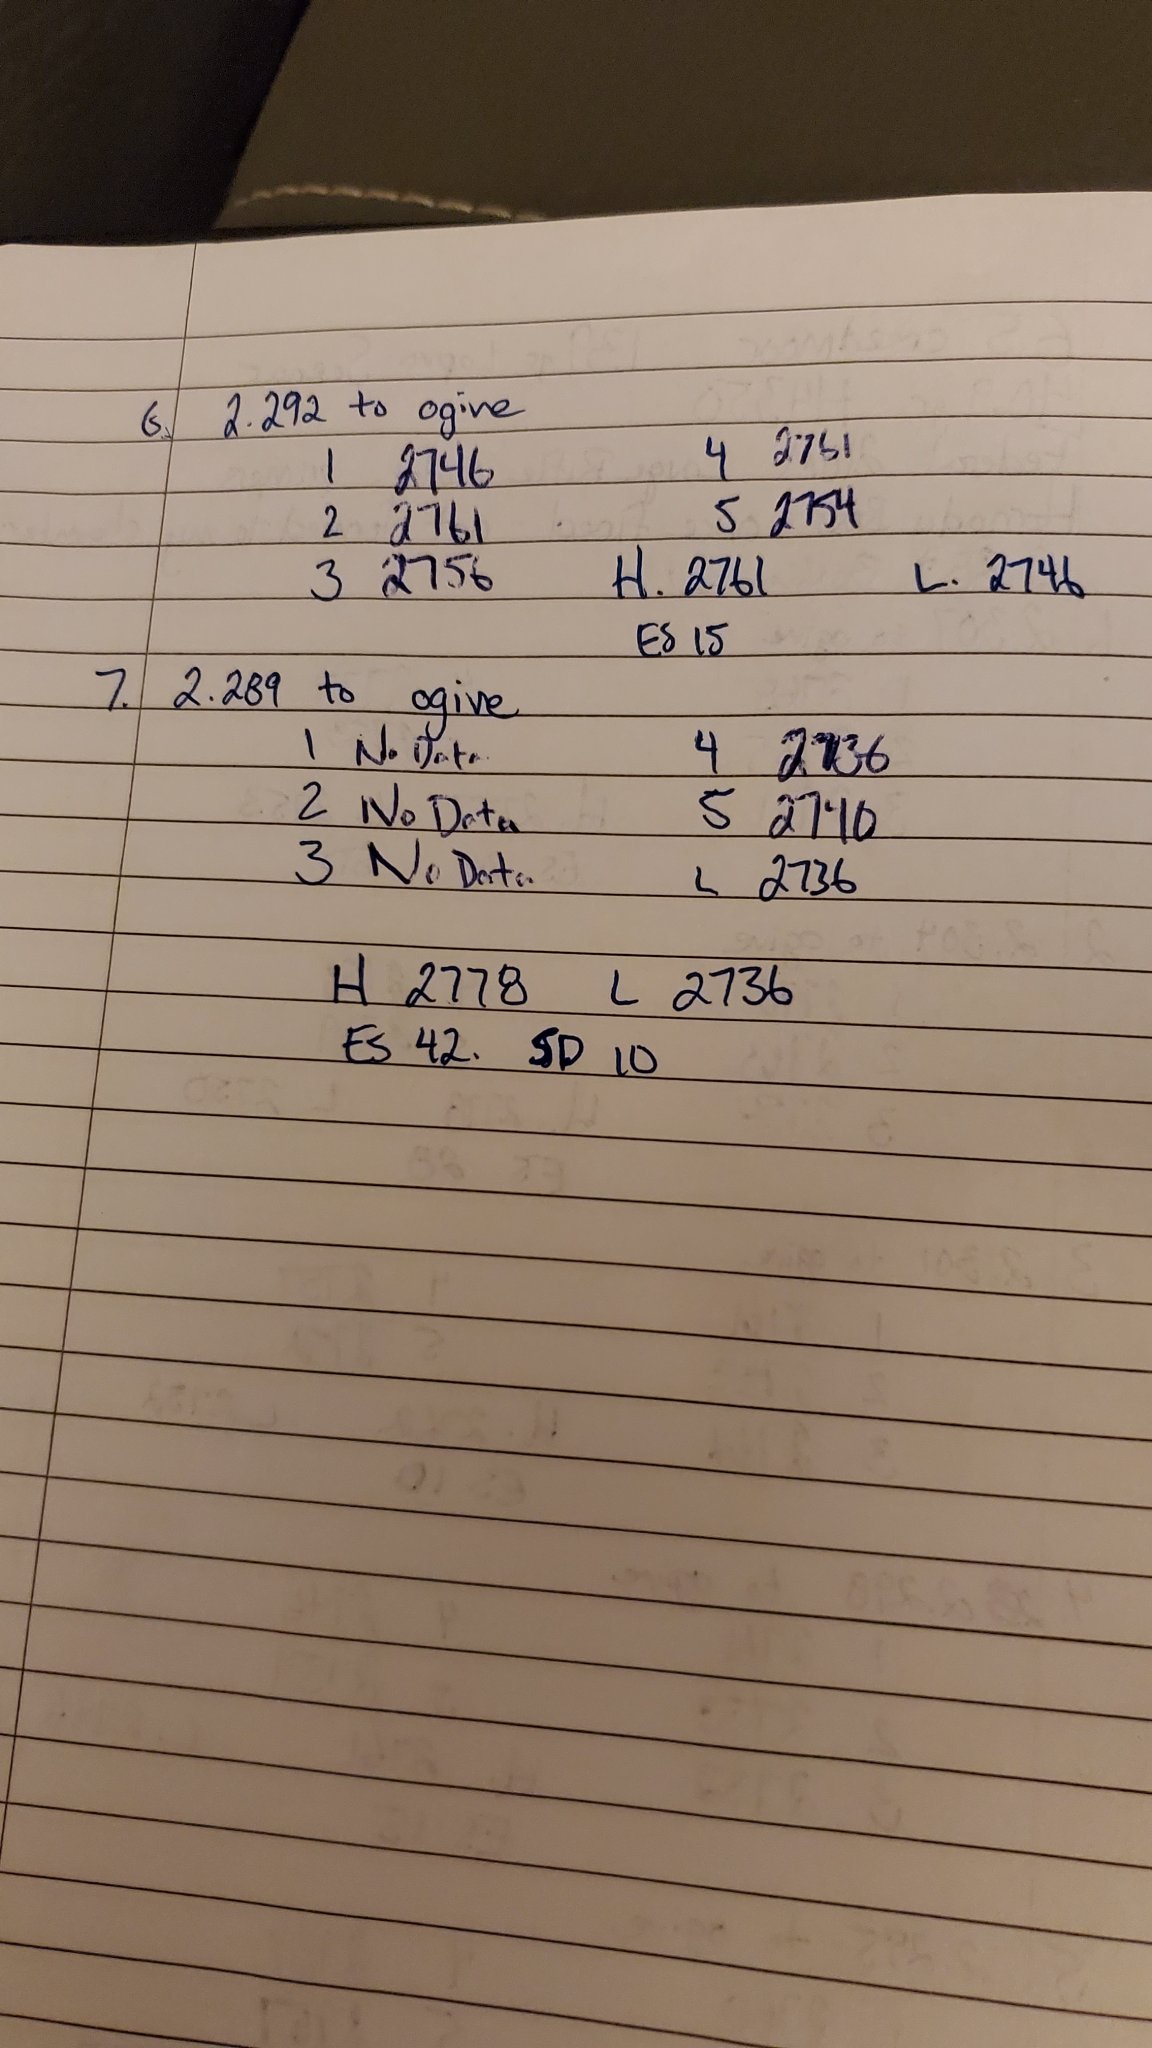 6. 2.292 to ogive
1 2746 4 2761
2 2761 5 2754
3 2756 H. 2761 L. 2746
ES 15
7. 2.289 to ogive
1 No Data 4 2736
2 No Data 5 2740
3 No Data L 2736
H 2778 L 2736
ES 42. SD 10